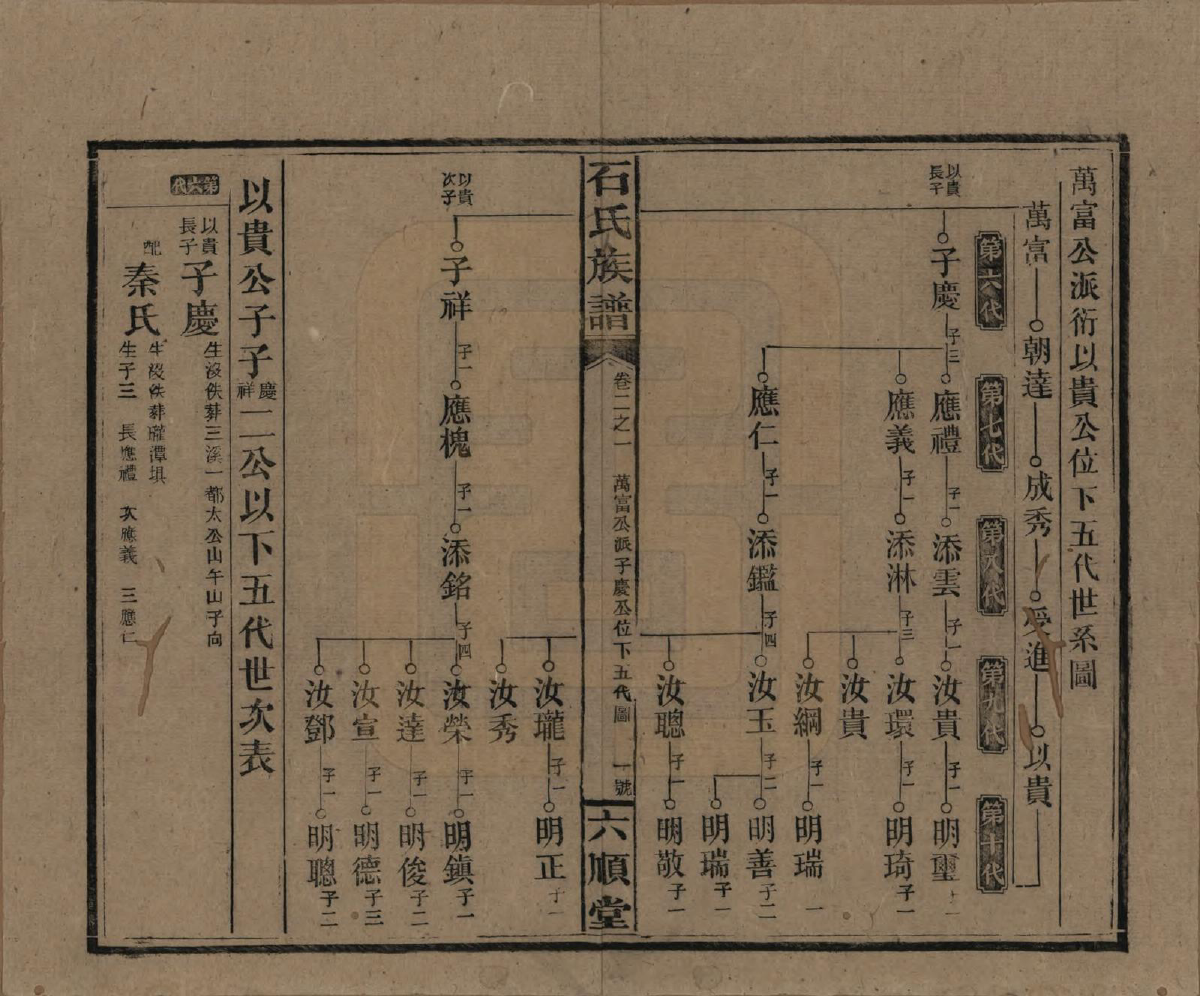 萬富公派衍以貴公位下五代世系圖
萬富 朝達 成秀 受進 以貴
第六代 第七代 第八代 第九代 第十代
以貴長子
子慶 子三 應禮 子一 添雲 子一 汝貴 子一 明璽 子一
應義 子一 添淋 子三 汝環 子一 明琦 子一
汝貴
汝綱 子一 明瑞 一
應仁 子一 添鑑 子四 汝玉 子二 明善 子二
明瑞 子一
汝聰 子一 明敬 子一
石氏族譜 卷二之一 萬富公派子慶公位下五代圖 一號 六順堂
汝瓏 子一 明正 子一
汝秀
以貴次子
子祥 子一 應槐 子一 添銘 子四 汝榮 子一 明鎮 子一
汝達 子一 明俊 子二
汝宣 子一 明德 子三
汝鄧 子一 明聰 子二
以貴公子子慶祥二公以下五代世次表
第六代
以貴長子 子慶 生沒佚葬三溪一都太公山午山子向
配 秦氏 生沒佚葬灌潭埧
生子三 長應禮 次應義 三應仁